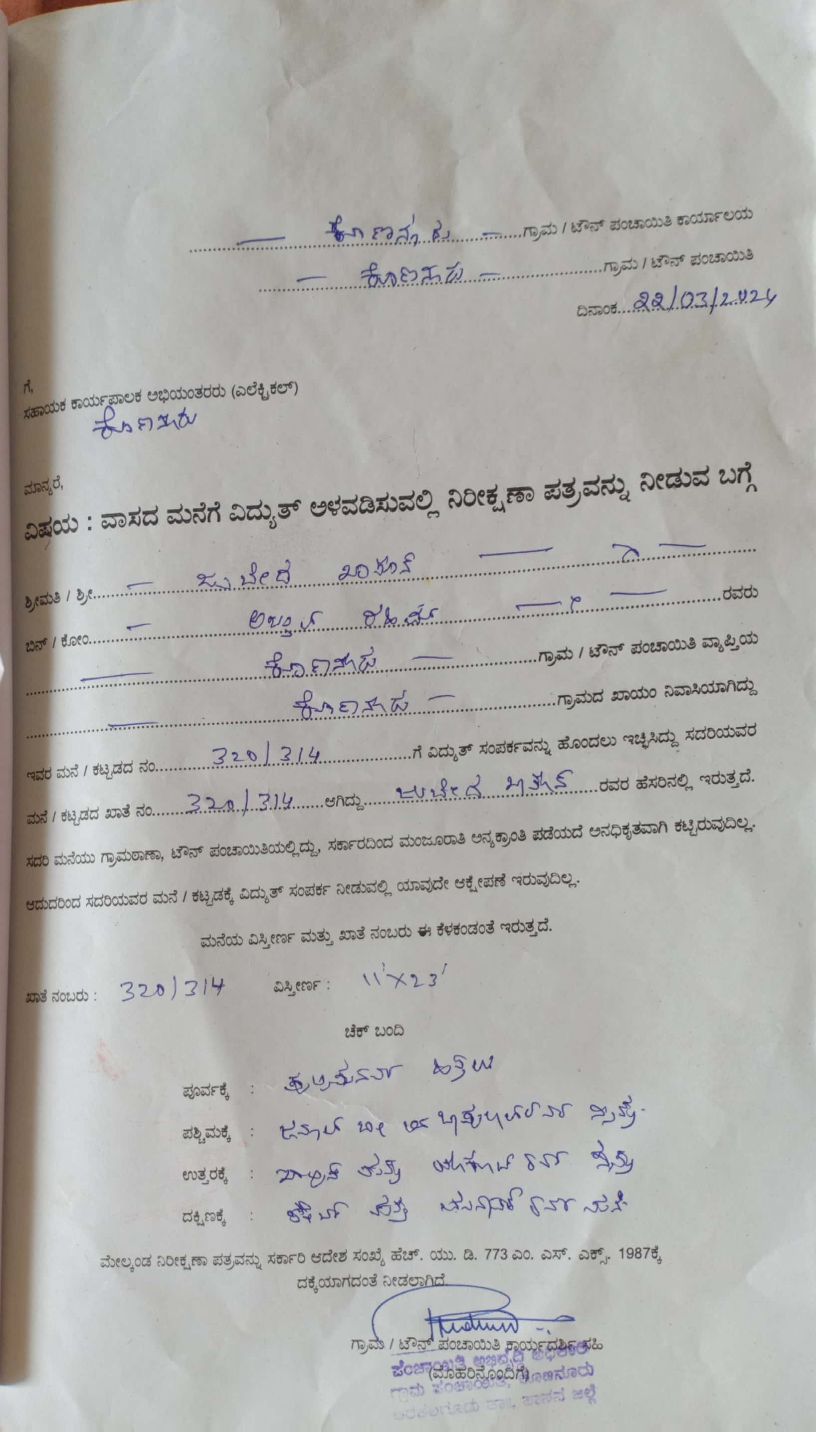 ಕೊಣನೂರು ಗ್ರಾಮ / ಟೌನ್ ಪಂಚಾಯಿತಿ ಕಾರ್ಯಾಲಯ
ಕೊಣನೂರು ಗ್ರಾಮ / ಟೌನ್ ಪಂಚಾಯಿತಿ
ದಿನಾಂಕ...22/03/2024
ಗೆ,
ಸಹಾಯಕ ಕಾರ್ಯಪಾಲಕ ಅಭಿಯಂತರರು (ಎಲೆಕ್ಟ್ರಿಕಲ್)
ಕೊಣನೂರು
ಮಾನ್ಯರೆ,
ವಿಷಯ : ವಾಸದ ಮನೆಗೆ ವಿದ್ಯುತ್ ಅಳವಡಿಸುವಲ್ಲಿ ನಿರೀಕ್ಷಣಾ ಪತ್ರವನ್ನು ನೀಡುವ ಬಗ್ಗೆ
ಶ್ರೀಮತಿ / ಶ್ರೀ... ಜುಬೇದ ಖಾನಂ
ಬಿನ್ / ಕೋಂ... ರವರು
ಕೊಣನೂರು ಗ್ರಾಮ / ಟೌನ್ ಪಂಚಾಯಿತಿ ವ್ಯಾಪ್ತಿಯ
ಕೊಣನೂರು ಗ್ರಾಮದ ಖಾಯಂ ನಿವಾಸಿಯಾಗಿದ್ದು
ಇವರ ಮನೆ / ಕಟ್ಟಡದ ನಂ... 320/314 ...ಗೆ ವಿದ್ಯುತ್ ಸಂಪರ್ಕವನ್ನು ಹೊಂದಲು ಇಚ್ಛಿಸಿದ್ದು ಸದರಿಯವರ
ಮನೆ / ಕಟ್ಟಡದ ಖಾತೆ ನಂ... 320/314 ...ಆಗಿದ್ದು... ಜುಬೇದ ಖಾನಂ ...ರವರ ಹೆಸರಿನಲ್ಲಿ ಇರುತ್ತದೆ.
ಸದರಿ ಮನೆಯು ಗ್ರಾಮಠಾಣಾ, ಟೌನ್ ಪಂಚಾಯಿತಿಯಲ್ಲಿದ್ದು, ಸರ್ಕಾರದಿಂದ ಮಂಜೂರಾತಿ ಅನ್ಯಕ್ರಾಂತಿ ಪಡೆಯದೆ ಅನಧಿಕೃತವಾಗಿ ಕಟ್ಟಿರುವುದಿಲ್ಲ.
ಆದುದರಿಂದ ಸದರಿಯವರ ಮನೆ / ಕಟ್ಟಡಕ್ಕೆ ವಿದ್ಯುತ್ ಸಂಪರ್ಕ ನೀಡುವಲ್ಲಿ ಯಾವುದೇ ಆಕ್ಷೇಪಣೆ ಇರುವುದಿಲ್ಲ.
ಮನೆಯ ವಿಸ್ತೀರ್ಣ ಮತ್ತು ಖಾತೆ ನಂಬರು ಈ ಕೆಳಕಂಡಂತೆ ಇರುತ್ತದೆ.
ಖಾತೆ ನಂಬರು : 320/314 ವಿಸ್ತೀರ್ಣ : 11'X23'
ಚೆಕ್ ಬಂದಿ
ಪೂರ್ವಕ್ಕೆ :
ಪಶ್ಚಿಮಕ್ಕೆ :
ಉತ್ತರಕ್ಕೆ :
ದಕ್ಷಿಣಕ್ಕೆ :
ಮೇಲ್ಕಂಡ ನಿರೀಕ್ಷಣಾ ಪತ್ರವನ್ನು ಸರ್ಕಾರಿ ಆದೇಶ ಸಂಖ್ಯೆ ಹೆಚ್. ಯು. ಡಿ. 773 ಎಂ. ಎಸ್. ಎಕ್ಸ್. 1987ಕ್ಕೆ
ದಕ್ಕೆಯಾಗದಂತೆ ನೀಡಲಾಗಿದೆ
ಗ್ರಾಮ / ಟೌನ್ ಪಂಚಾಯಿತಿ ಕಾರ್ಯದರ್ಶಿ ಸಹಿ
(ಮೊಹರಿನೊಂದಿಗೆ)
ಪಂಚಾಯಿತಿ ಅಭಿವೃದ್ಧಿ ಅಧಿಕಾರಿ
ಗ್ರಾಮ ಪಂಚಾಯಿತಿ, ಕೊಣನೂರು
ಅರಕಲಗೂಡು ತಾ||, ಹಾಸನ ಜಿಲ್ಲೆ